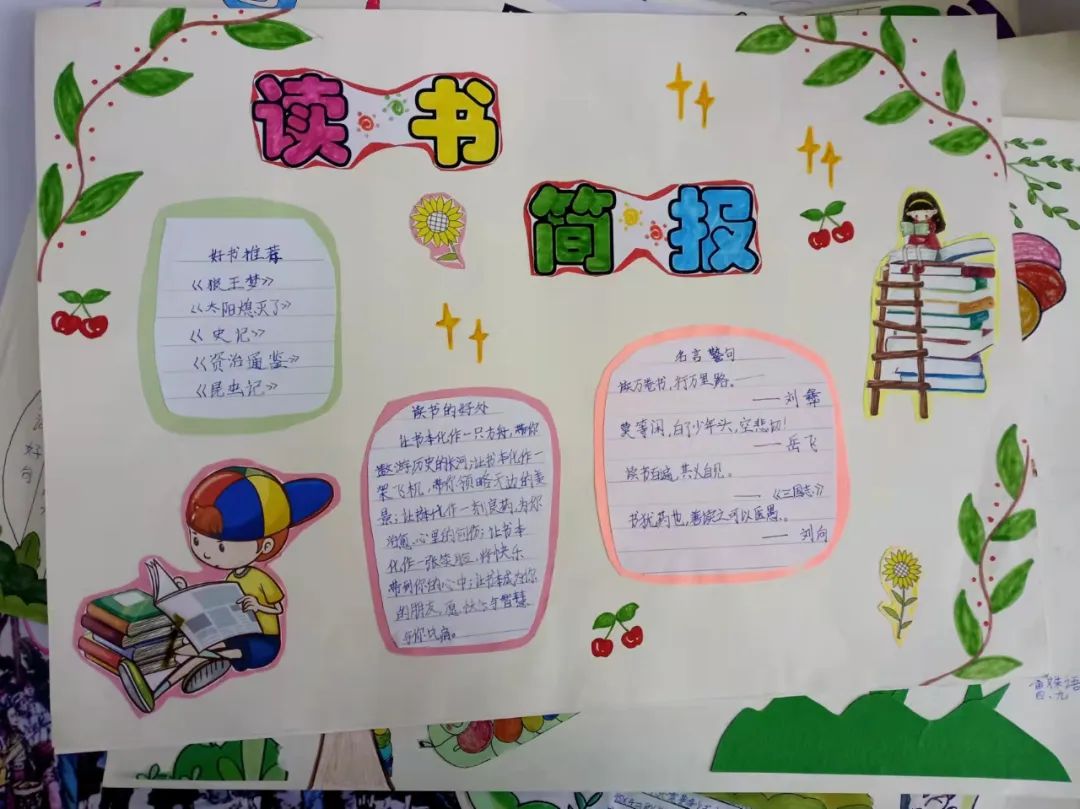 读书
简报
好书推荐
《狼王梦》
《太阳熄灭了》
《史记》
《资治通鉴》
《昆虫记》
读书的好处
让书本化作一只方舟，带你
遨游历史的长河；让书本化作一
架飞机，带你领略无边的美
景；让书本化作一剂良药，为你
治愈心里的创伤；让书本
化作一张笑脸，将快乐
带到你的心中；让书本成为你
的朋友，愿快乐与智慧
与你比肩。
名言警句
读万卷书，行万里路。——
—— 刘彝
莫等闲，白了少年头，空悲切！
—— 岳飞
读书百遍，其义自见。
—— 《三国志》
书犹药也，善读之可以医愚。
—— 刘向
四.九